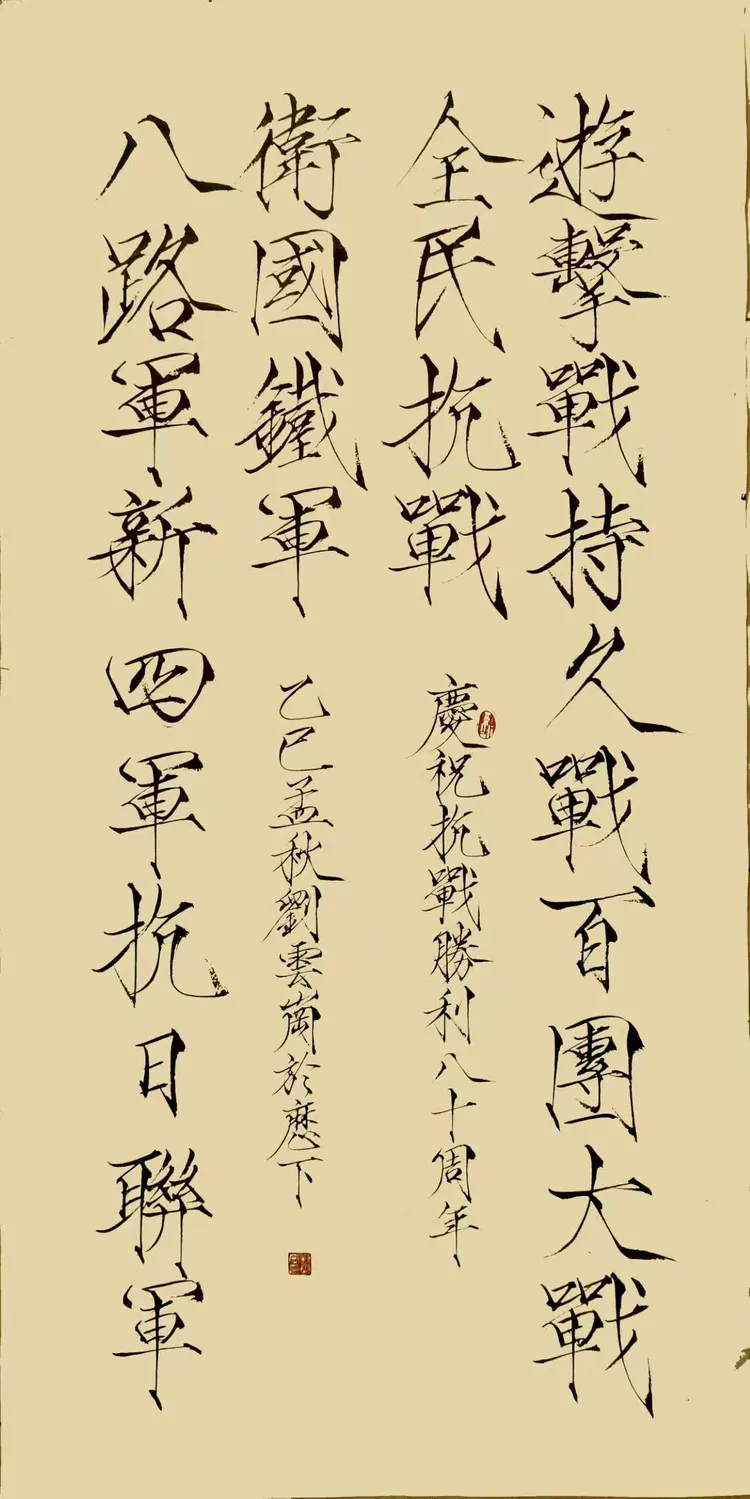 遊擊戰持久戰百團大戰
全民抗戰
慶祝抗戰勝利八十周年
衛國鐵軍
乙巳孟秋劉雲崗於歷下
八路軍新四軍抗日聯軍